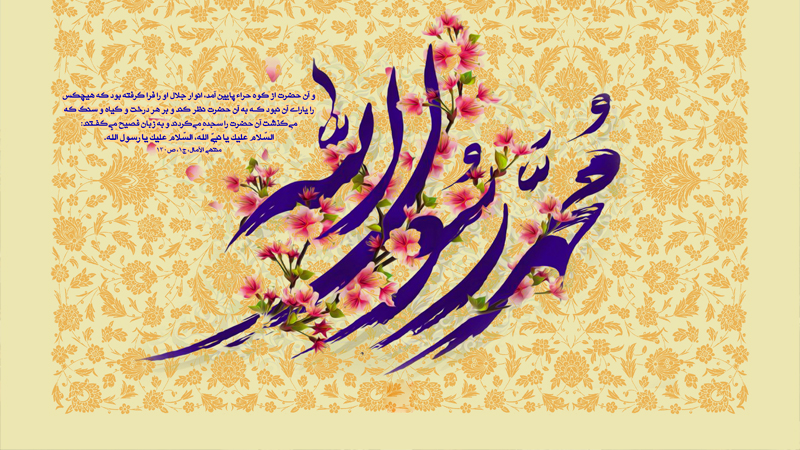 محمد رسول الله
و آن حضرت از کوه حراء پایین آمد، انوار جلال او را فرا گرفته بود که هیچکس
را یارای آن نبود که به آن حضرت نظر کند و بر هر درخت و گیاه و سنگ که
می‌گذشت آن حضرت را سجده می‌کردند و به زبان فصیح می‌گفتند:
السّلام علیک یا نبیّ الله، السّلام علیک یا رسول الله.
منتهی الآمال، ج۱، ص۱۳۰